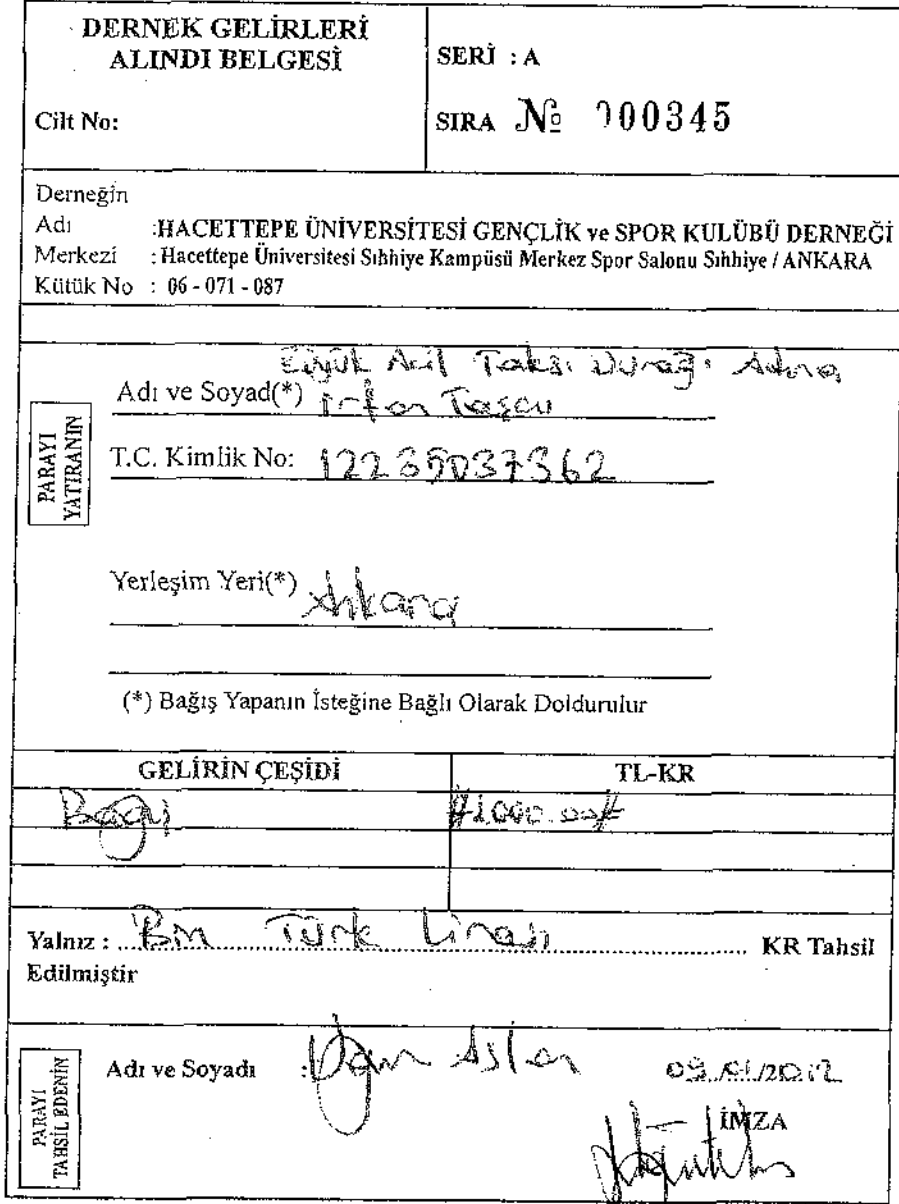 DERNEK GELİRLERİ
ALINDI BELGESİ
Cilt No:
SERİ : A
SIRA № 000345
Derneğin
Adı :HACETTEPE ÜNİVERSİTESİ GENÇLİK ve SPOR KULÜBÜ DERNEĞİ
Merkezi : Hacettepe Üniversitesi Sıhhiye Kampüsü Merkez Spor Salonu Sıhhiye / ANKARA
Kütük No : 06 - 071 - 087
PARAYI
YATIRANIN
Acil Taksi Durağı Adına
Adı ve Soyad(*) irfan Taşcu
T.C. Kimlik No: 12235037362
Yerleşim Yeri(*) Ankara
(*) Bağış Yapanın İsteğine Bağlı Olarak Doldurulur
GELİRİN ÇEŞİDİ TL-KR
Bağış #1.000.00#
Yalnız : Bin Türk Lirası KR Tahsil
Edilmiştir
PARAYI
TAHSİL EDENİN
Adı ve Soyadı : Aslan
09/01/2012
İMZA